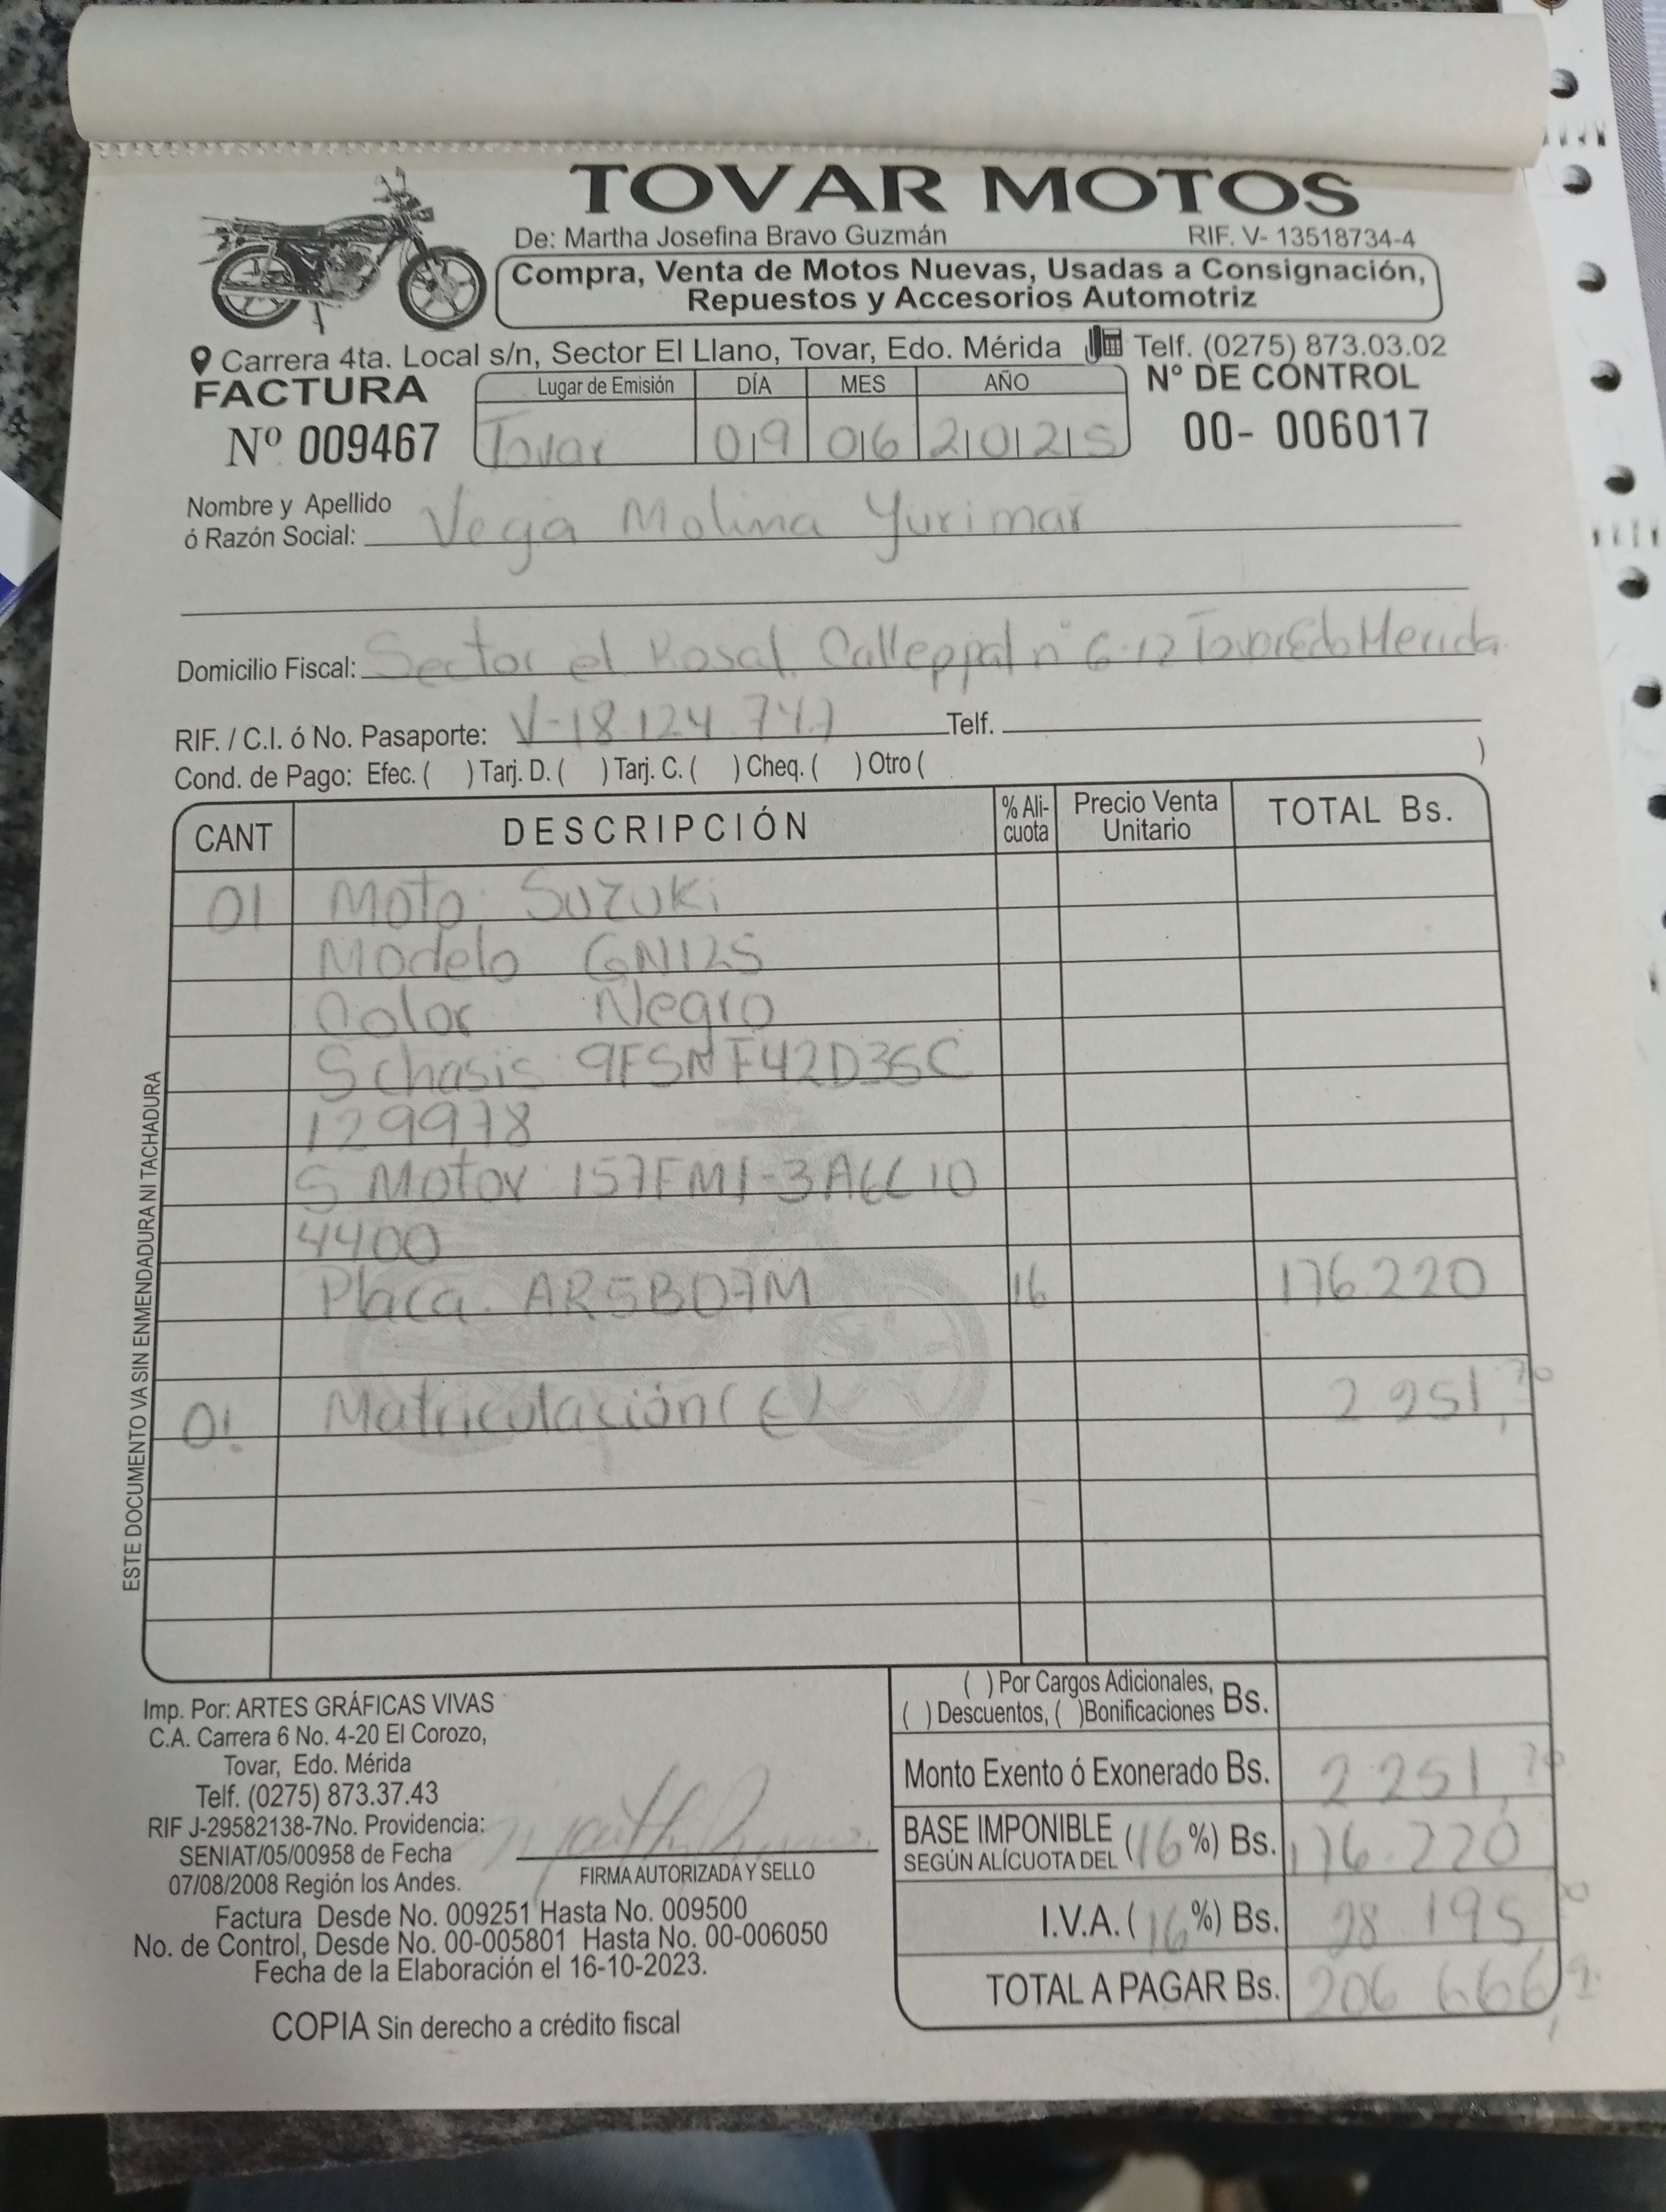 TOVAR MOTOS
De: Martha Josefina Bravo Guzmán RIF. V- 13518734-4
Compra, Venta de Motos Nuevas, Usadas a Consignación,
Repuestos y Accesorios Automotriz
Carrera 4ta. Local s/n, Sector El Llano, Tovar, Edo. Mérida Telf. (0275) 873.03.02
FACTURA Lugar de Emisión DÍA MES AÑO Nº DE CONTROL
Nº 009467 Tovar 09 06 2025 00- 006017
Nombre y Apellido
ó Razón Social: Vega Molina Yurimar
Domicilio Fiscal: Sector el Rosal Calle ppal nº 6-12 Tovar Edo Merida
RIF. / C.I. ó No. Pasaporte: V-18.124.747 Telf.
Cond. de Pago: Efec. ( ) Tarj. D. ( ) Tarj. C. ( ) Cheq. ( ) Otro ( )
CANT DESCRIPCIÓN % Ali-cuota Precio Venta Unitario TOTAL Bs.
01 Moto Suzuki
Modelo GN125
Color Negro
S chasis: 9FSNF42D3SC
129978
S Motor 157FMI-3A6C10
4400
Placa. AR5B07M 16 176.220
01 Matriculación (E) 2.251,70
ESTE DOCUMENTO VA SIN ENMENDADURA NI TACHADURA
Imp. Por: ARTES GRÁFICAS VIVAS
C.A. Carrera 6 No. 4-20 El Corozo,
Tovar, Edo. Mérida
Telf. (0275) 873.37.43
RIF J-29582138-7No. Providencia:
SENIAT/05/00958 de Fecha
07/08/2008 Región los Andes.
FIRMA AUTORIZADA Y SELLO
Factura Desde No. 009251 Hasta No. 009500
No. de Control, Desde No. 00-005801 Hasta No. 00-006050
Fecha de la Elaboración el 16-10-2023.
COPIA Sin derecho a crédito fiscal
( ) Por Cargos Adicionales,
( ) Descuentos, ( )Bonificaciones Bs.
Monto Exento ó Exonerado Bs. 2.251,70
BASE IMPONIBLE
SEGÚN ALÍCUOTA DEL (16%) Bs. 176.220
I.V.A. (16%) Bs. 28.195
TOTAL A PAGAR Bs. 206.666